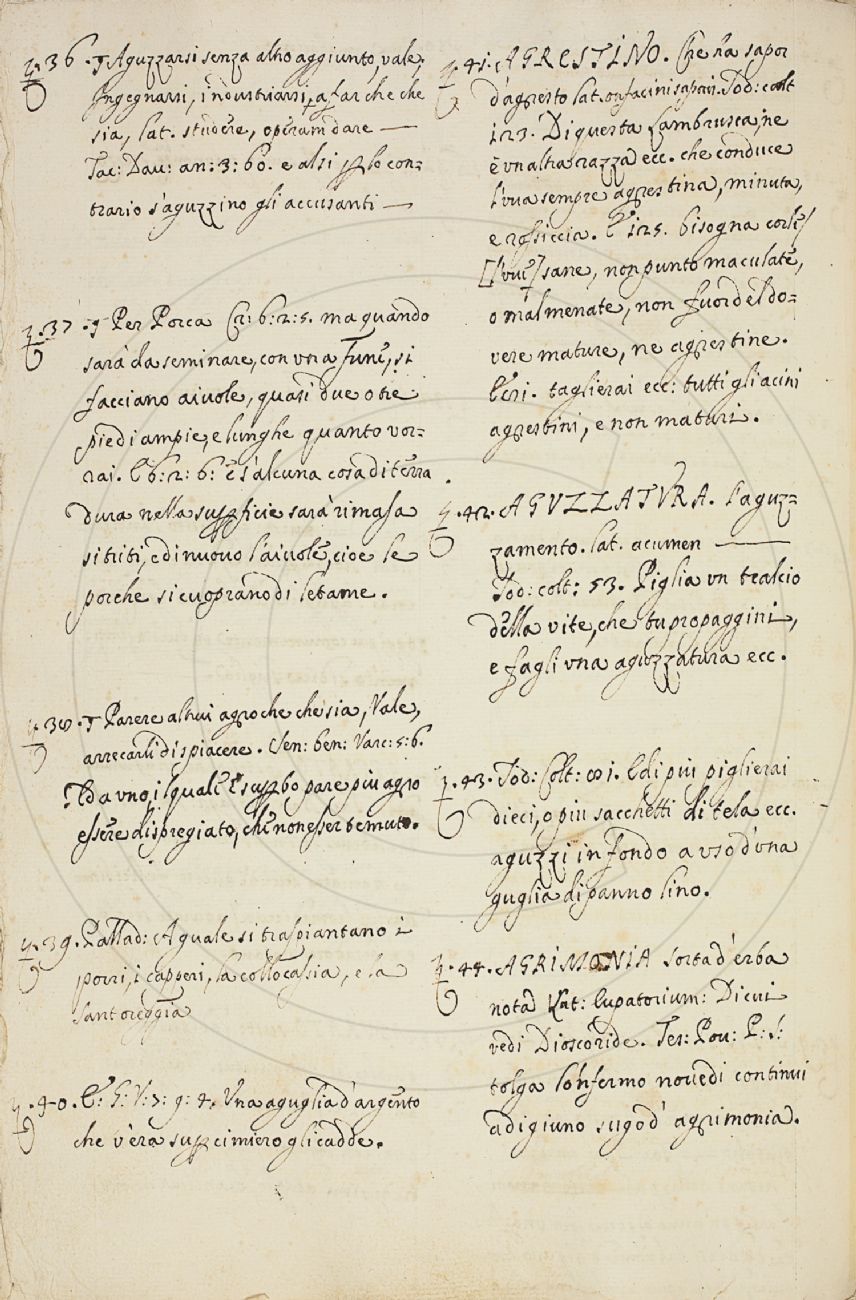 36. ¶ Aguzzarsi senza altro aggiunto, vale,
Ingegnarsi, industriarsi, a far che che
sia, lat. studere, operam dare —
Tac: Dav: an: 3: 60. e alsi p lo con:
trario s'aguzzino gli accusanti —
37. ¶ Per Porca Cr: 6: 2: 5. ma quando
sarà da seminare, con una fune, si
facciano aiuole, quasi due o tre
piedi ampie, e lunghe quanto vor:
rai. E 6: 2: 6: E s'alcuna cosa di terra
dura nella suppficie sarà rimasa
si triti, e di nuovo l'aivole, cioe le
porche si cuoprano di letame.
38. ¶ Parere altrui agro che che sia, Vale,
arrecarli dispiacere. Sen: ben: Varc: 5: 6.
Ed a uno, il quale è supbo pare piu agro
essere dispregiato, che non esser temuto.
39. Pallad: Aguale si traspiantano i
porri, i capperi, la collocassia, e la
santoreggia
40. G: V: 7: 9: 4. Una aguglia d'argento
che v'era sup cimiero gli cadde.
41. AGRESTINO. Che ha sapor
d'agresto lat. onfacini saporis. Sod: colt
123. Di questa lambrusca, ne
è vn altra razza ecc. che conduce
l'vua sempre agrestina, minuta,
e rossiccia. E 125. bisogna corle/
[l'vue] sane, non punto maculate,
o malmenate, non fuor del do:
vere mature, ne agrestine.
taglierai ecc: tutti gli acini
agrestini, e non maturi.
42. AGVZZATVRA. l'aguz:
zamento. lat. acumen —
Sod: colt: 53. Piglia vn tralcio
della vite, che tu propaggini,
e fagli vna aguzzatura ecc.
43. Sod: Colt: 81. E di piu piglierai
dieci, o piu sacchetti di tela ecc.
aguzzi in fondo a vso d'vna
guglia di panno lino.
44. AGRIMONIA sorta d'erba
nota Lat: Eupatorium: Di cui
vedi Dioscoride. Tes: Pov: P: S:
tolga lo'nfermo nove di continui
a digiuno sugo d' agrimonia.